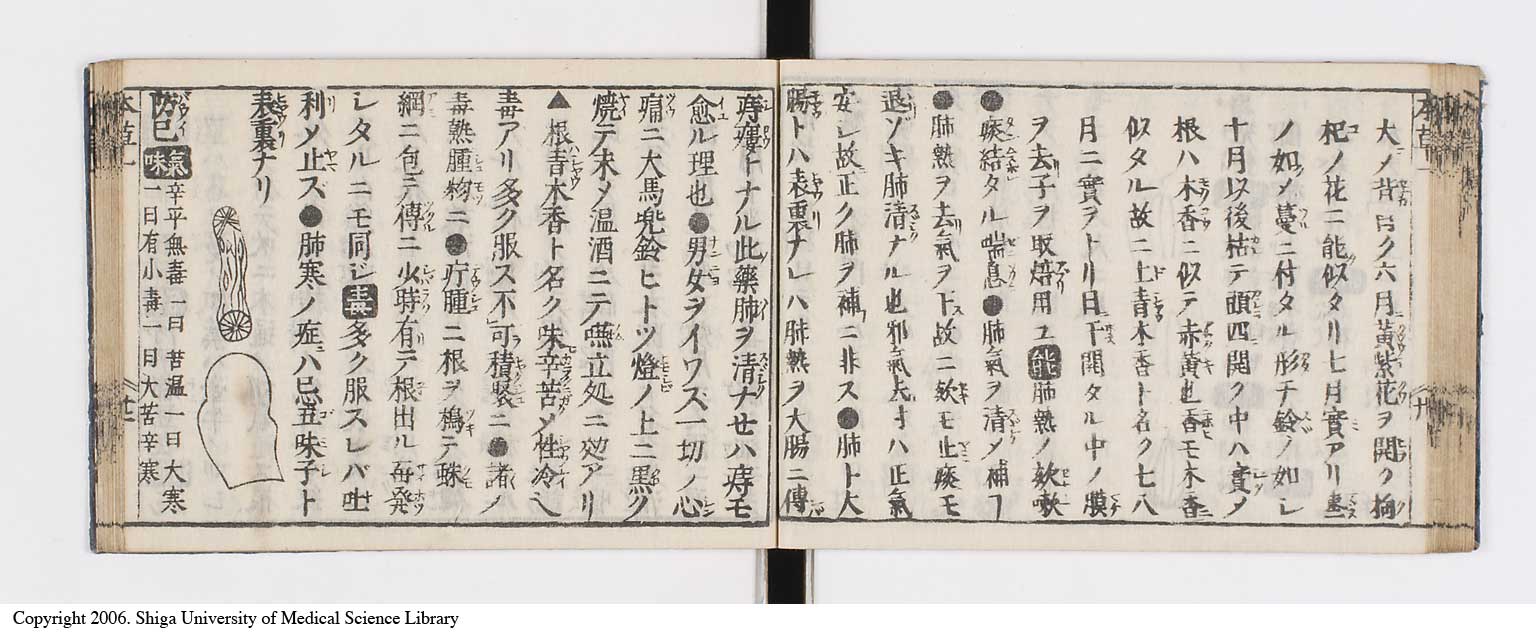 大ノ背白ク六月黄紫花ヲ開ク拘
杞ノ花ニ能似タリ七月實アリ
ノ如メ蔓ニ付タル形チ鈴ノ如シ
十月以後枯テ頭四開ク中ハ實メ
根ハ木香ニ似テ赤黄也香モ木香ニ
似タル故ニ土青木香ト名ク七八
月ニ實ヲトリ日干開タル中ノ膜
ヲ去子ヲ取焙用ユ能肺熱ノ欬嗽
●痰結タル喘息●肺氣ヲ清メ補フ
●肺熱ヲ去氣ヲ下ス故ニ欬モ止痰モ
退ゾキ肺清ナル也邪氣去寸ハ正氣
安シ故正ク肺ヲ補ニ非ス●肺ト大
腸トハ表裏ナレハ肺熱ヲ大腸ニ傳
痔瘻トナル此藥肺ヲ清ナセハ痔モ
愈ル理也●男女ヲイワス一切ノ心
痛ニ大馬兜鈴ヒトツ燈ノ上ニ黒ク
焼テ末メ温酒ニテ嚥立処ニ効アリ
▲根青木香ト名ク味辛苦メ性冷ヘ
毒アリ多ク服ス不可積聚ニ●諸ノ
毒熱腫物ニ●疔腫ニ根ヲ搗テ蛛
網ニ包テ傳ニ火時有テ根出ル毎発
シタルニモ同シ毒多ク服スレバ吐
利メ止ズ●肺寒ノ症ハ忌五味子ト
表裏ナリ
防已 氣味 辛平無毒一曰苦温一曰大寒
一曰有小毒一曰大苦辛寒
本草一
廿一
本草一
廿
Copyright 2006. Shiga University of Medical Science Library